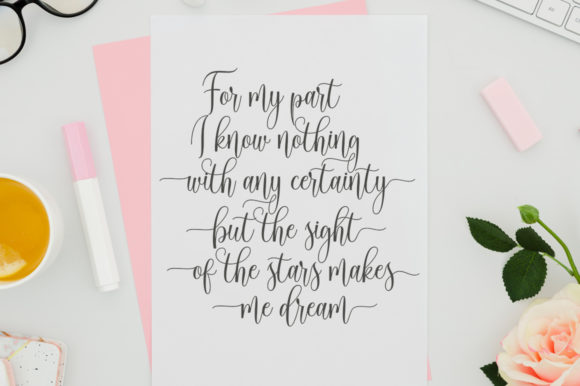 For my part
I know nothing
with any certainty
but the sight
of the stars makes
me dream